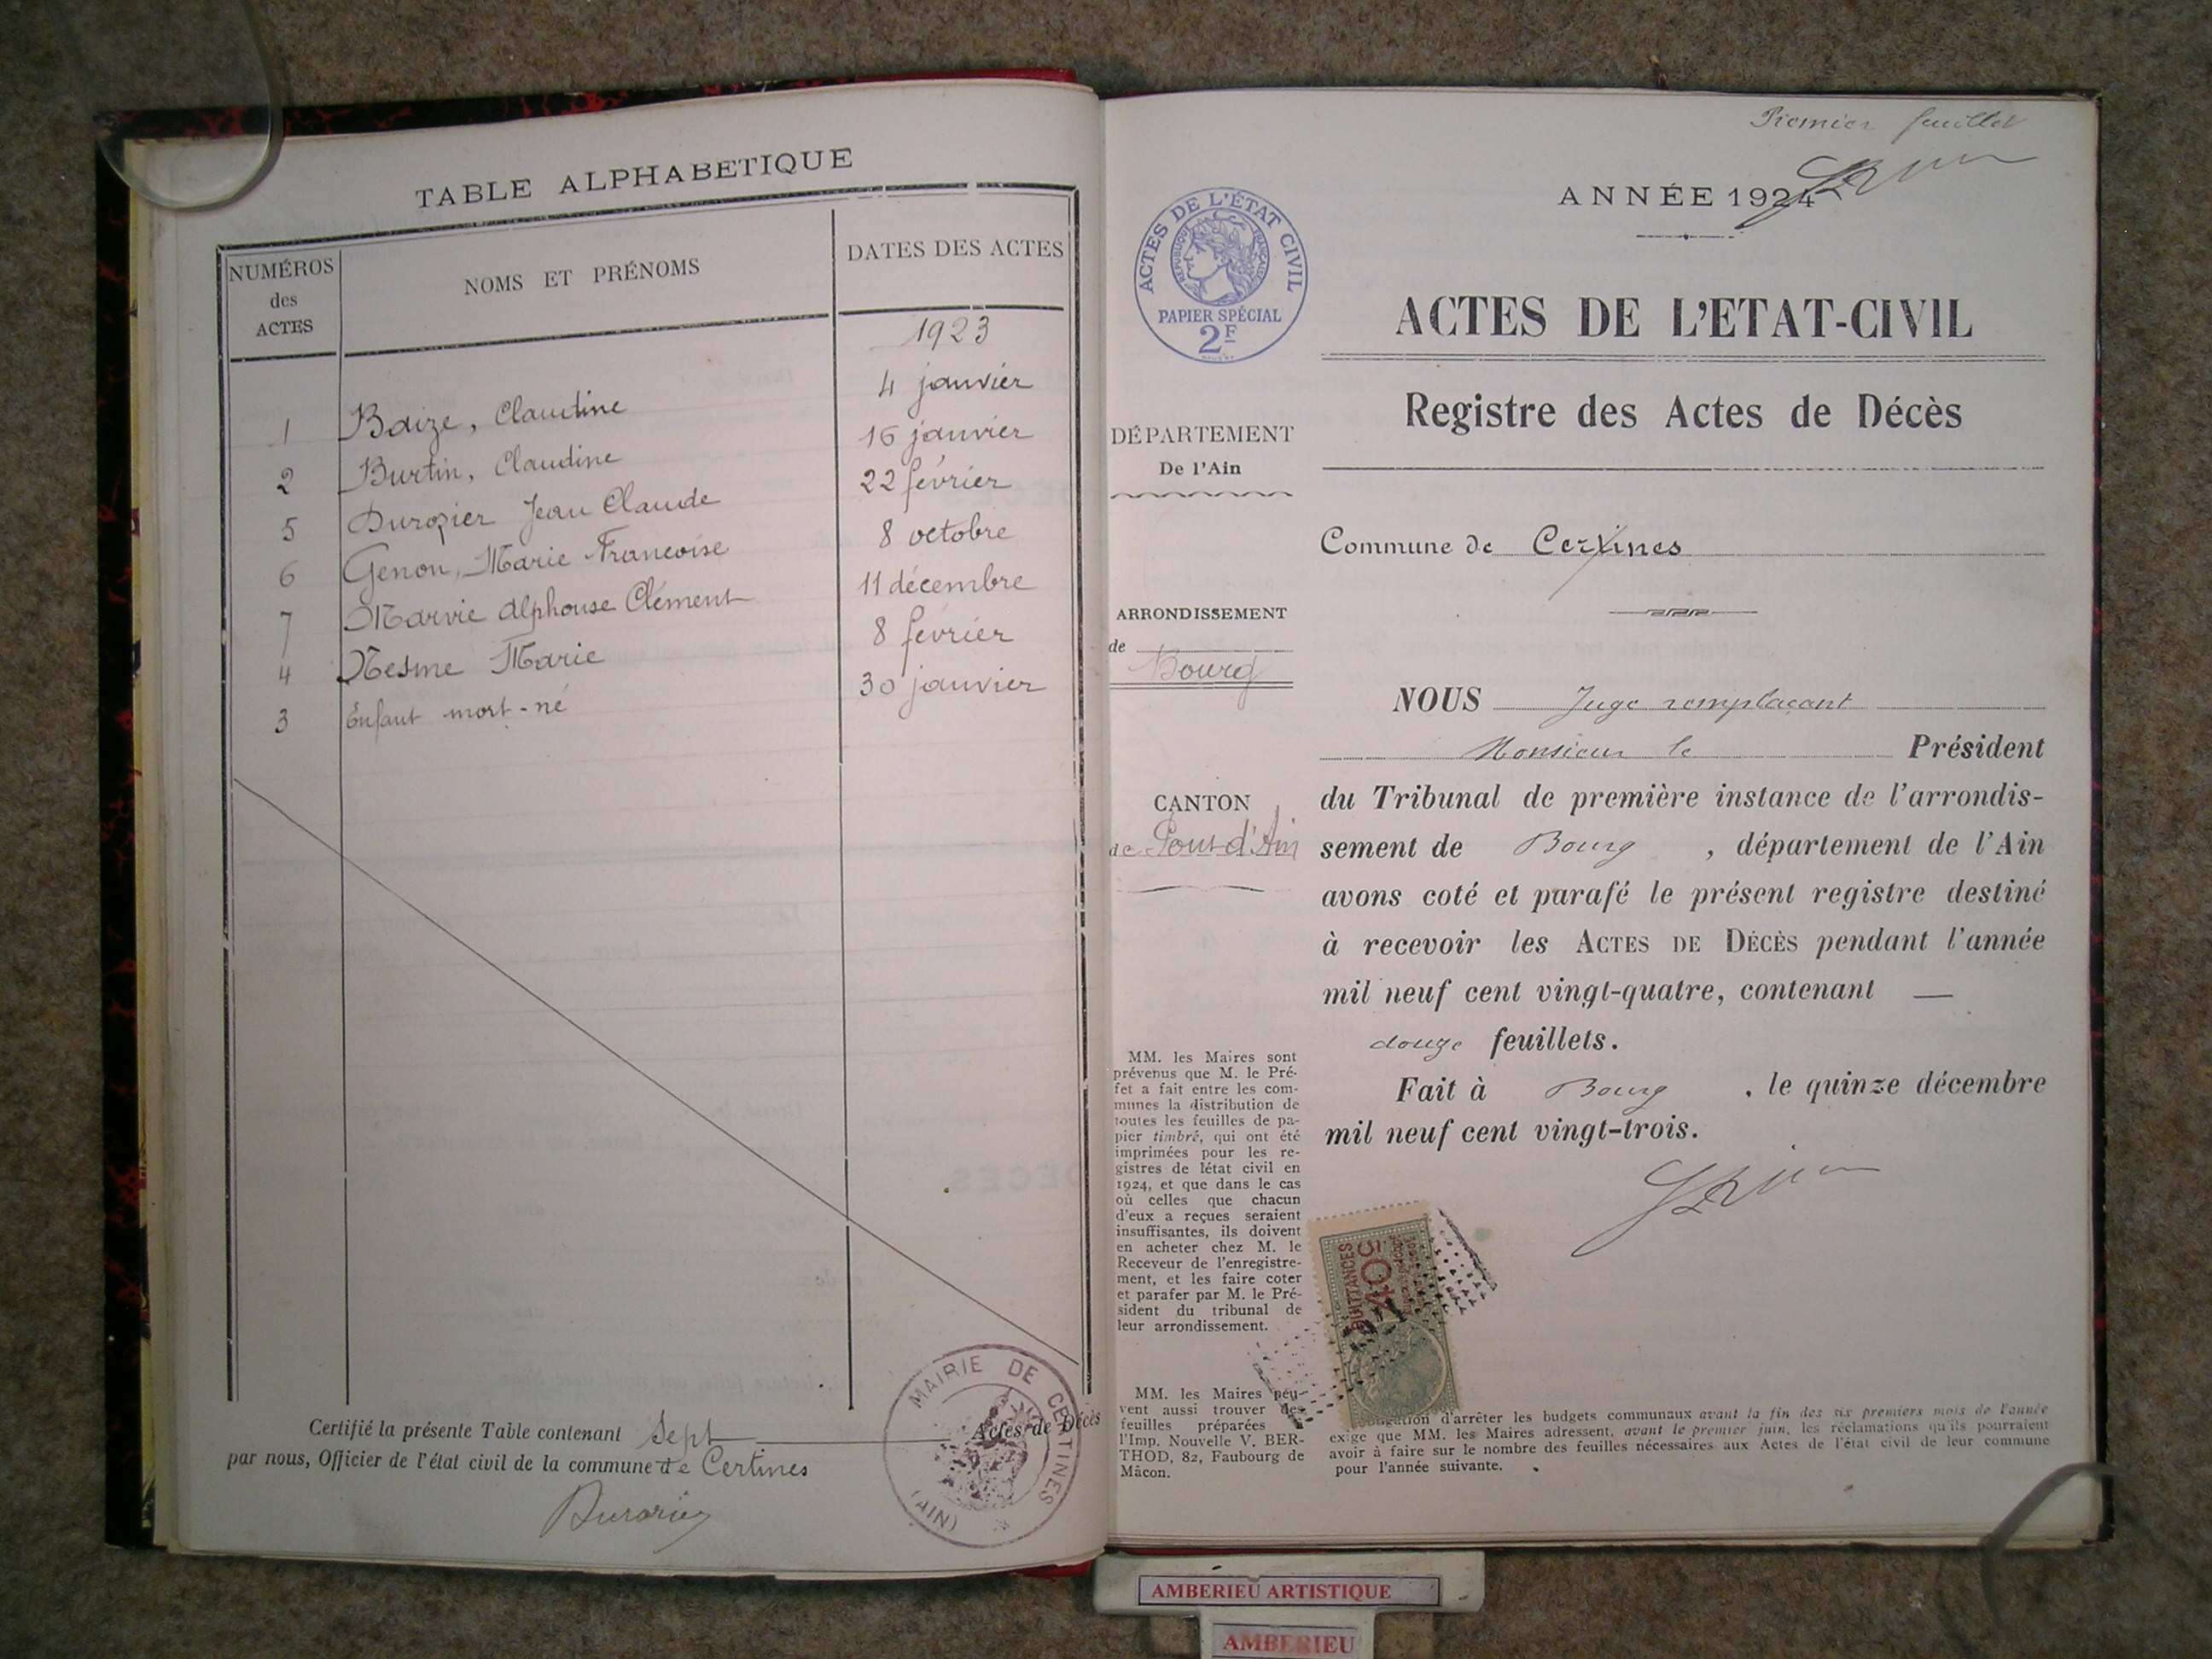 TABLE ALPHABETIQUE
NUMÉROS des ACTES
NOMS ET PRÉNOMS
DATES DES ACTES
1923
1 Baize, Claudine 4 janvier
2 Burtin, Claudine 16 janvier
5 Durozier Jean Claude 22 février
6 Genon, Marie Françoise 8 octobre
7 Marvie Alphonse Clément 11 décembre
4 Nesme Marie 8 février
3 Enfant mort-né 30 janvier
Certifié la présente Table contenant Sept Actes de Décès
par nous, Officier de l'état civil de la commune de Certines
MAIRIE DE CERTINES
(AIN)
Premier feuillet
ANNÉE 1924
ACTES DE L'ÉTAT CIVIL
RÉPUBLIQUE FRANÇAISE
PAPIER SPÉCIAL
2F
ACTES DE L'ETAT-CIVIL
Registre des Actes de Décès
DÉPARTEMENT
De l'Ain
Commune de Certines
ARRONDISSEMENT
de
Bourg
CANTON
de Pont d'Ain
NOUS Juge remplaçant
Monsieur le Président
du Tribunal de première instance de l'arrondis-
sement de Bourg , département de l'Ain
avons coté et parafé le présent registre destiné
à recevoir les ACTES DE DÉCÈS pendant l'année
mil neuf cent vingt-quatre, contenant —
douze feuillets.
Fait à Bourg , le quinze décembre
mil neuf cent vingt-trois.
MM. les Maires sont
prévenus que M. le Pré-
fet a fait entre les com-
munes la distribution de
toutes les feuilles de pa-
pier timbré, qui ont été
imprimées pour les re-
gistres de létat civil en
1924, et que dans le cas
où celles que chacun
d'eux a reçues seraient
insuffisantes, ils doivent
en acheter chez M. le
Receveur de l'enregistre-
ment, et les faire coter
et parafer par M. le Pré-
sident du tribunal de
leur arrondissement.
MM. les Maires peu-
vent aussi trouver des
feuilles préparées
l'Imp. Nouvelle V. BER-
THOD, 82, Faubourg de
Mâcon.
QUITTANCES
40c
d'arrêter les budgets communaux avant la fin des six premiers mois de l'année
exige que MM. les Maires adressent, avant le premier juin, les réclamations qu'ils pourraient
avoir à faire sur le nombre des feuilles nécessaires aux Actes de l'état civil de leur commune
pour l'année suivante.
AMBERIEU ARTISTIQUE
AMBERIEU